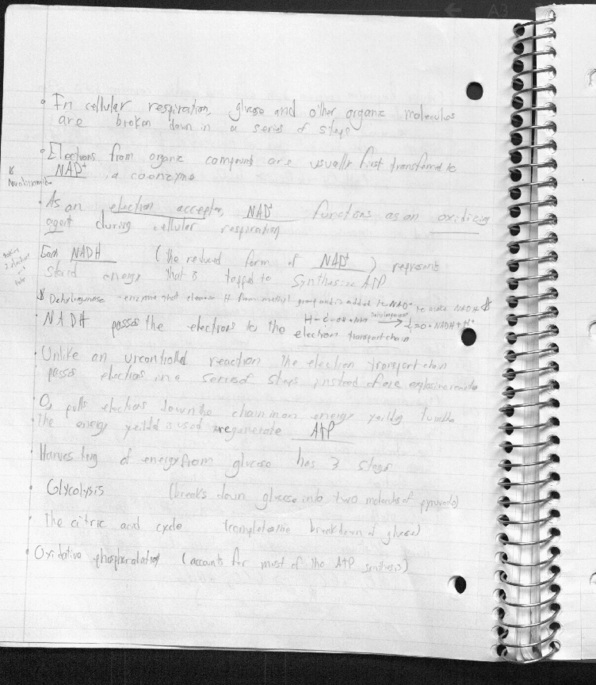 • In cellular respiration, glucose and other organic molecules
are broken down in a series of steps
• Electrons from organic compounds are usually first transferred to
NAD+, a coenzyme
• As an electron acceptor, NAD+ functions as an oxidizing
agent during cellular respiration
Each NADH (the reduced form of NAD+) represents
stored energy that is tapped to synthesize ATP
Dehydrogenase - enzyme that H from and adds to NAD+ to
• NADH passes the electrons to the electron transport chain
• Unlike an uncontrolled reaction the electron transport chain
passes electrons in a series of steps instead of one explosive reaction
• O2 pulls electrons down the chain in an energy yeilding tumble
• The energy yeilded is used to regenerate ATP
• Harvesting of energy from glucose has 3 steps
• Glycolysis (breaks down glucose into two molecules of pyruvate)
• The citric acid cycle (completes the breakdown of glucose)
• Oxidative phosphorylation (accounts for most of the ATP synthesis)